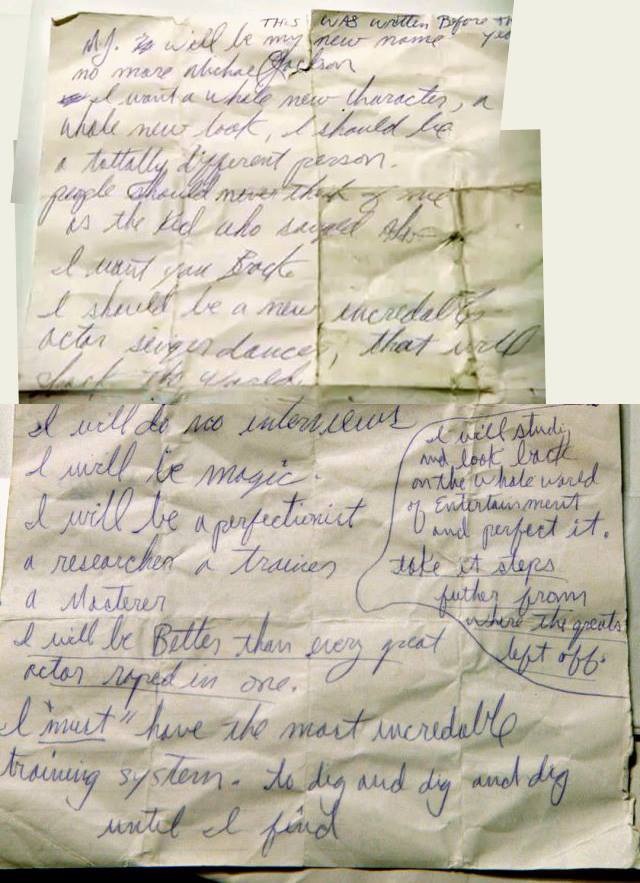 THIS WAS written Before th
MJ. will be my new name
no more Michael Jackson
I want a whole new character, a
whole new look, I should be
a tottally different person.
people should never think of me
as the kid who sanged ABC
I want you Back
I should be a new incredable
actor singer dancer, that will
shock the world.
I will do no interviews
I will be magic.
I will be a perfectionist
a researcher a trainer
a Masterer
I will be Better than every great
actor roped in one.
I "must" have the most incredable
training system. to dig and dig and dig
until I find
I will study
and look back
on the whole world
of Entertainment
and perfect it.
take it steps
futher from
where the greats
left off.